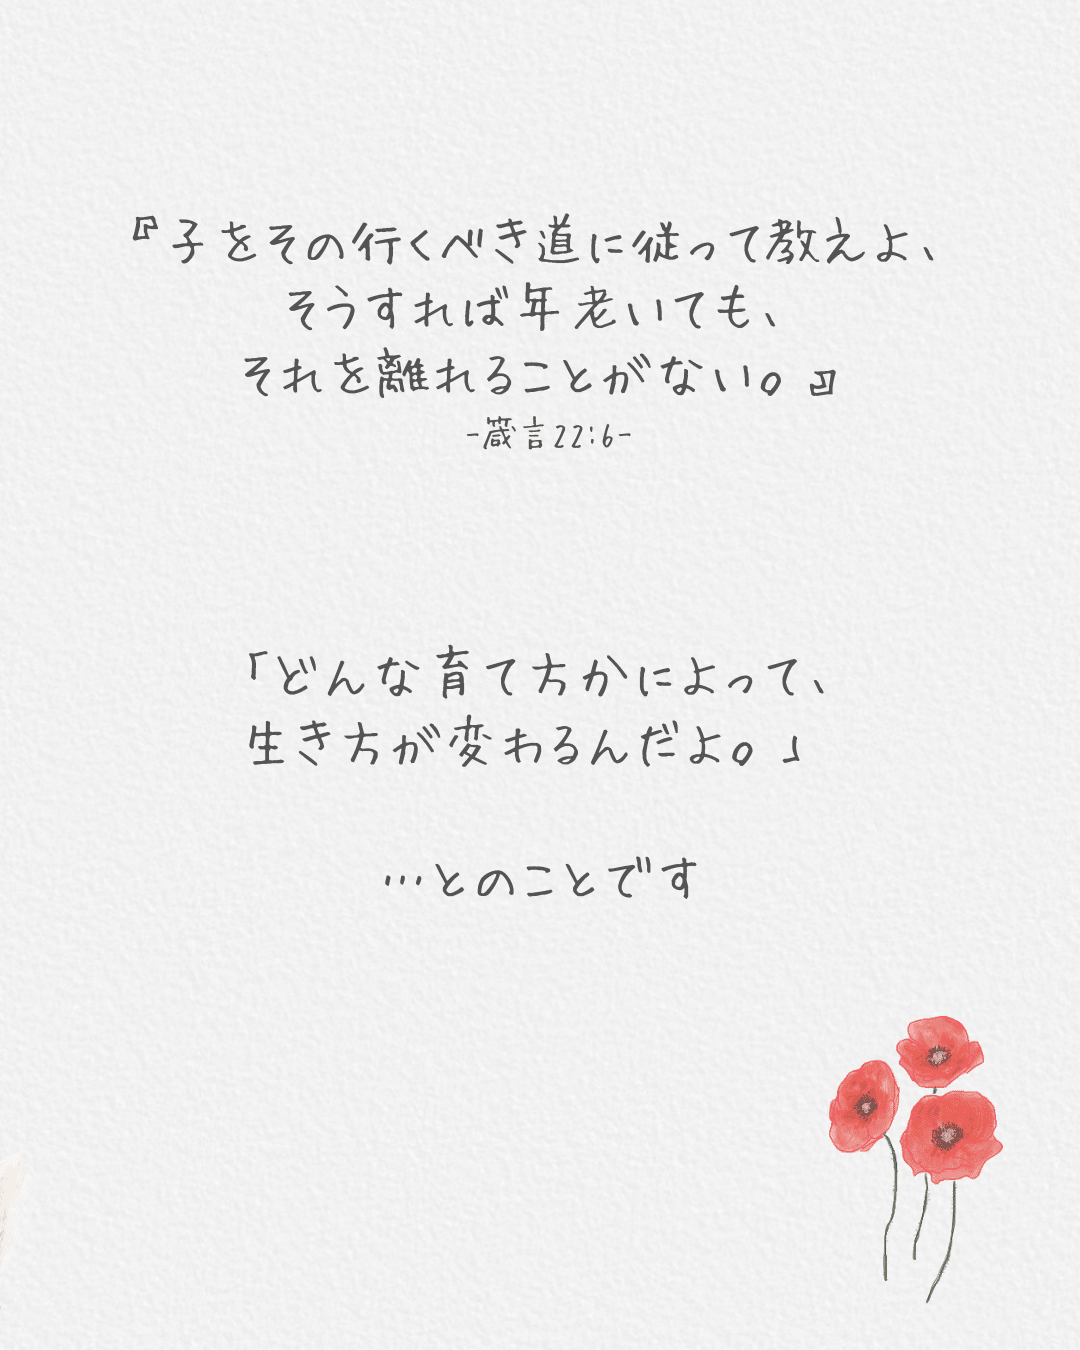 『子をその行くべき道に従って教えよ、
そうすれば年老いても、
それを離れることがない。』
-箴言22:6-
「どんな育て方かによって、
生き方が変わるんだよ。」
…とのことです